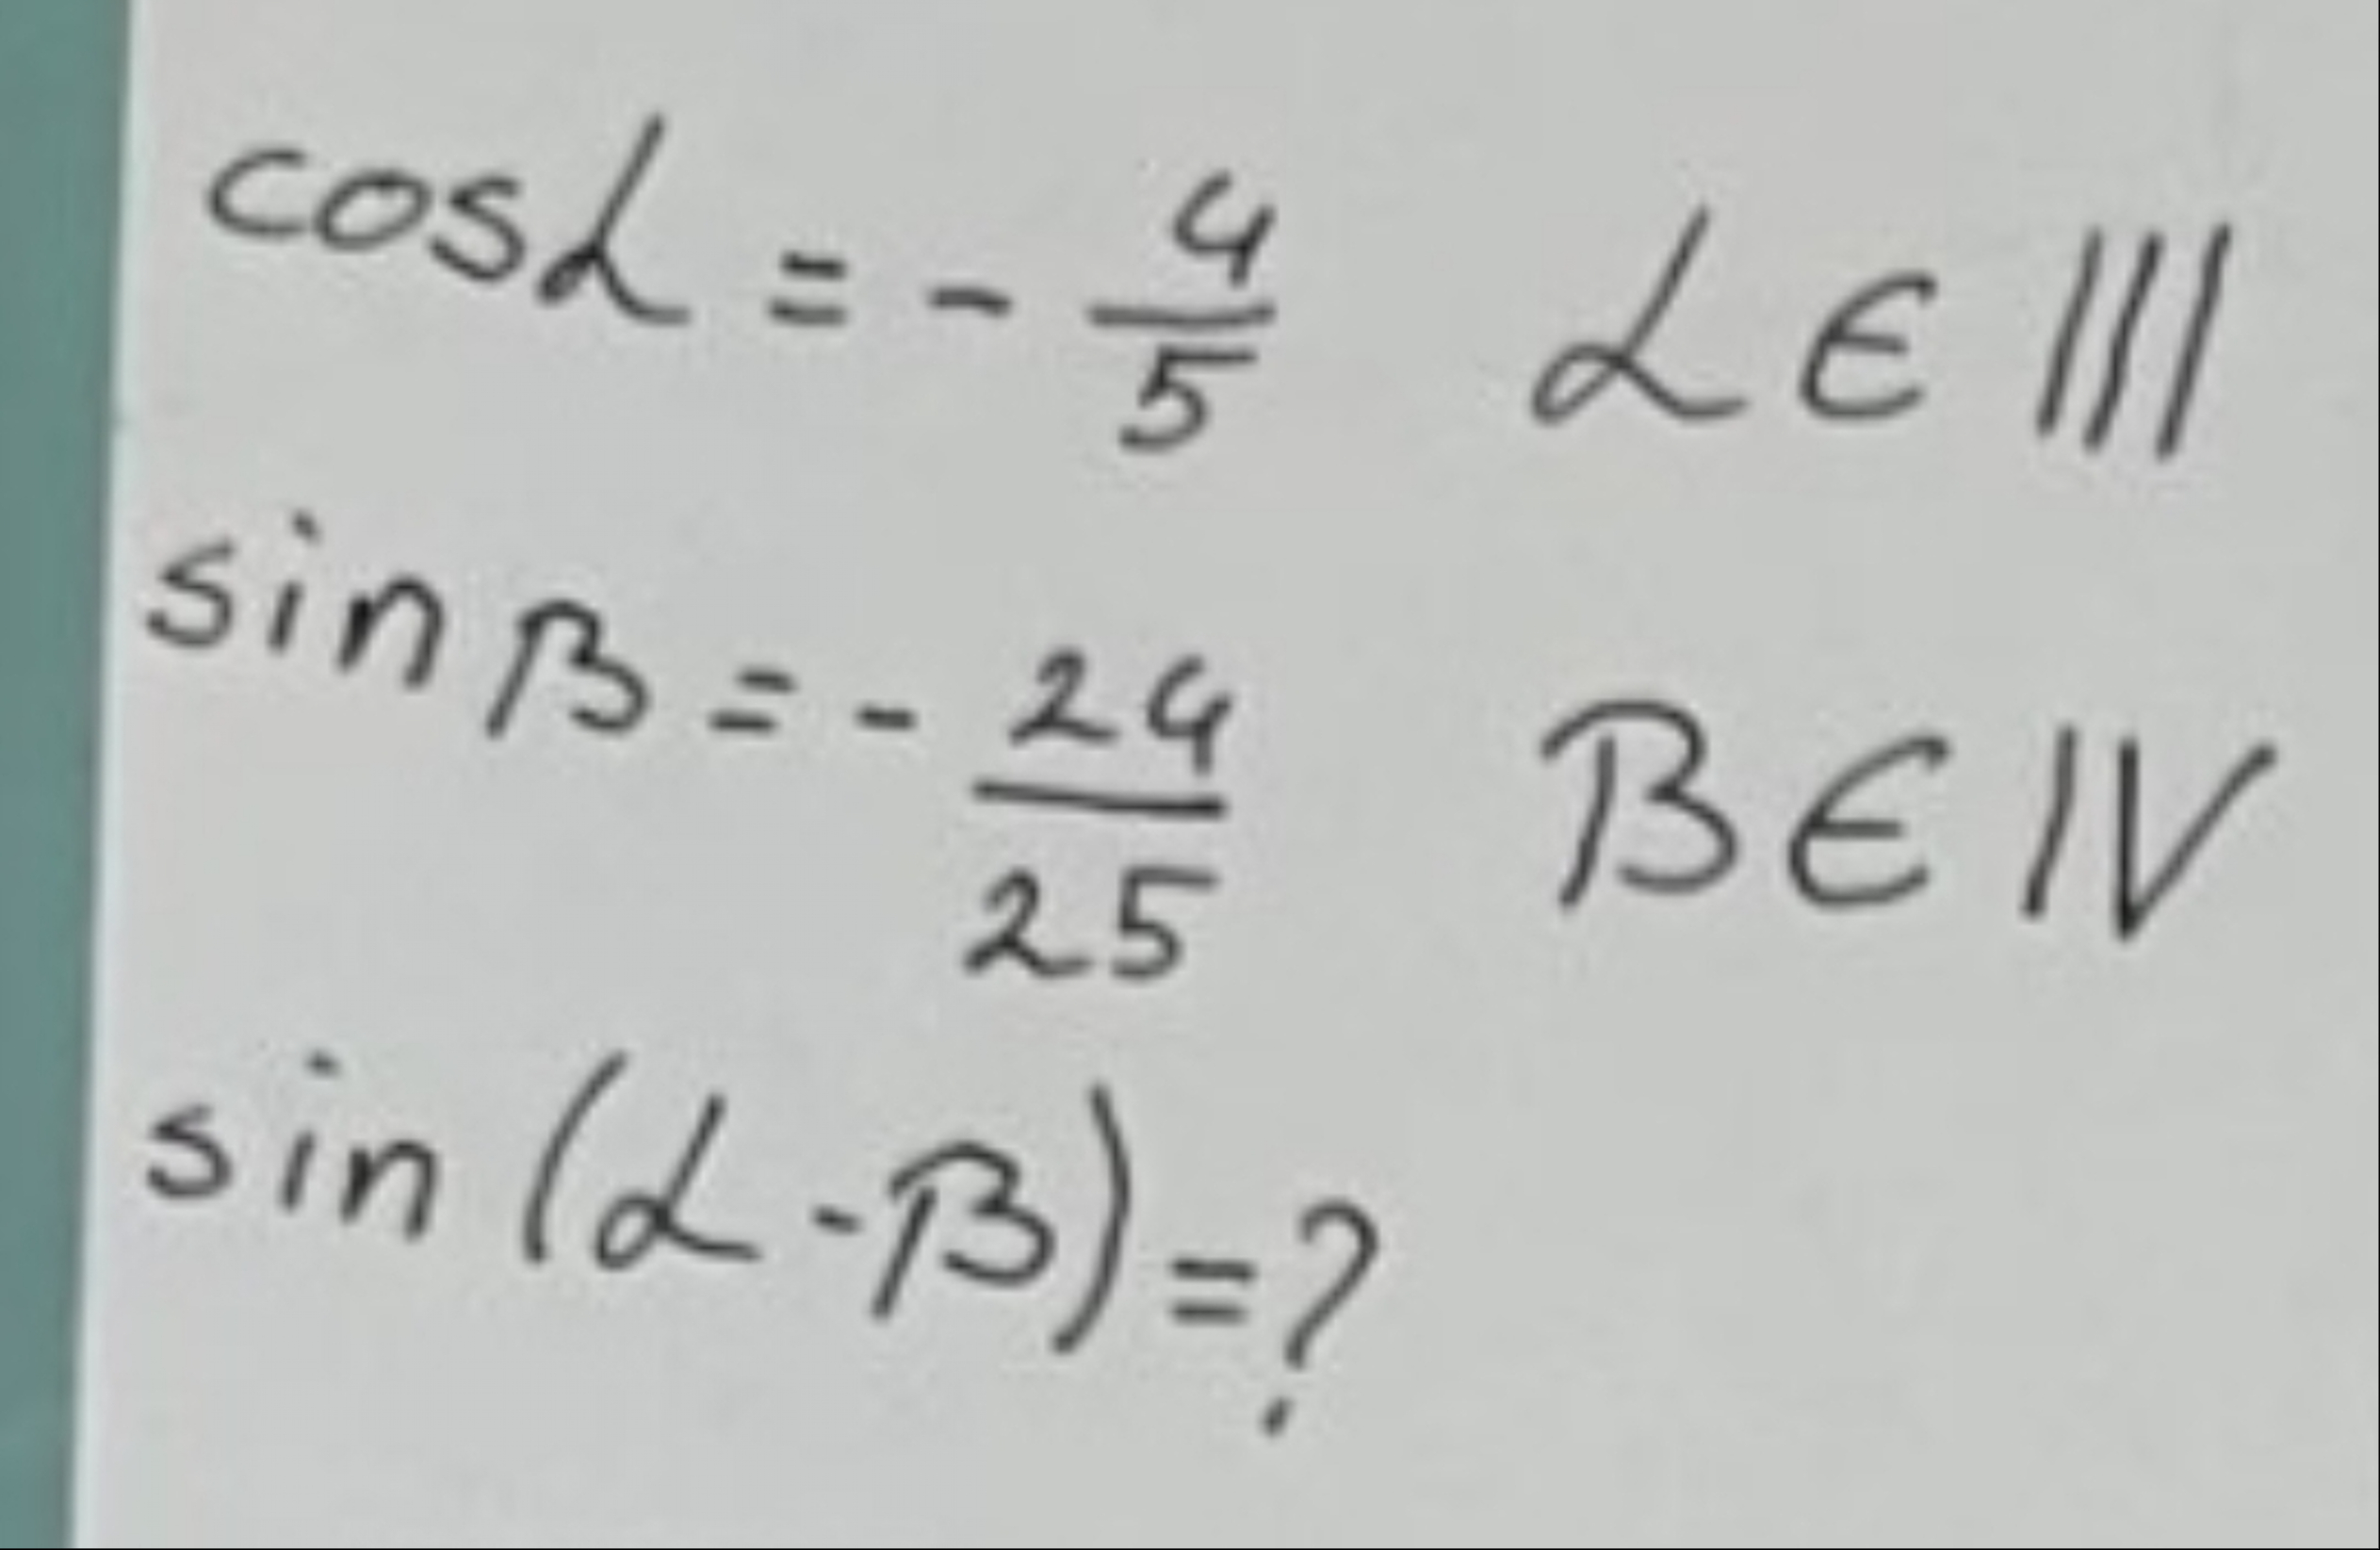 cos α = - 4/5 α ∈ III
sin β = - 24/25 β ∈ IV
sin (α - β) = ?